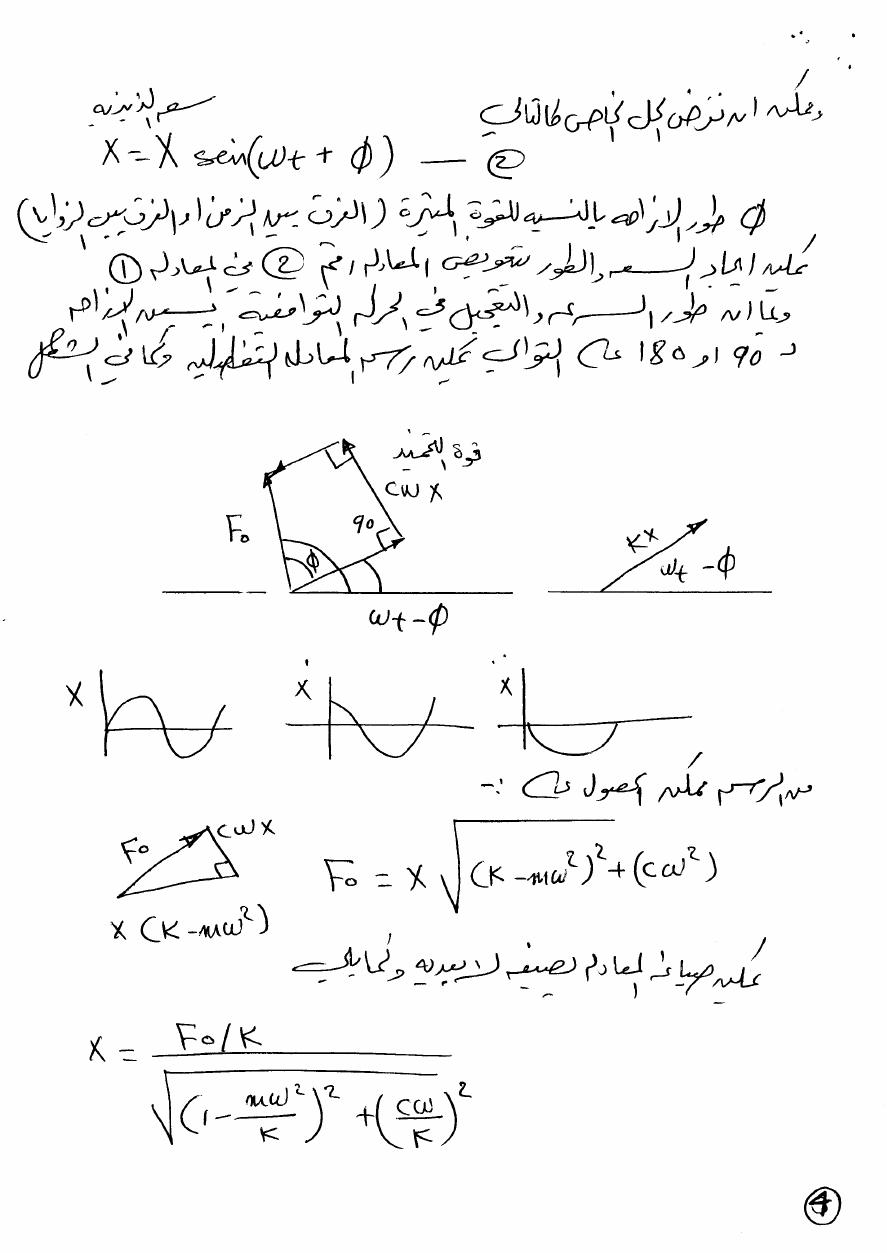 ويمكن ان نفرض الحل الخاص كالتالي
سعه الذبذبه
X = X sen(ωt + ϕ) — ②
ϕ طور الازاحه بالنسبه للقوة المثيرة (الفرق بين الزمن او الفرق بين الزوايا)
يمكن ايجاد السعه والطور بتعويض المعادله رقم ② في المعادله ①
وبما ان طور السرعه والتعجيل في الحركه التوافقية يسبق الازاحه
بـ 90 او 180 على التوالي يمكن رسم المعادله التفاضليه وكما في الشكل
قوة التخميد
cωx
F₀
90
ϕ
ωt-ϕ
Kx
ωt -ϕ
X
Ẋ
Ẍ
من الرسم يمكن الحصول على :-
F₀
cωx
x (K-mω²)
F₀ = x √(K-mω²)²+(cω²)
يمكن صياغة المعادله بصيغه لابعديه وكمايلي
X = F₀/K
√(1-mω²/K)² +(cω/K)²
④